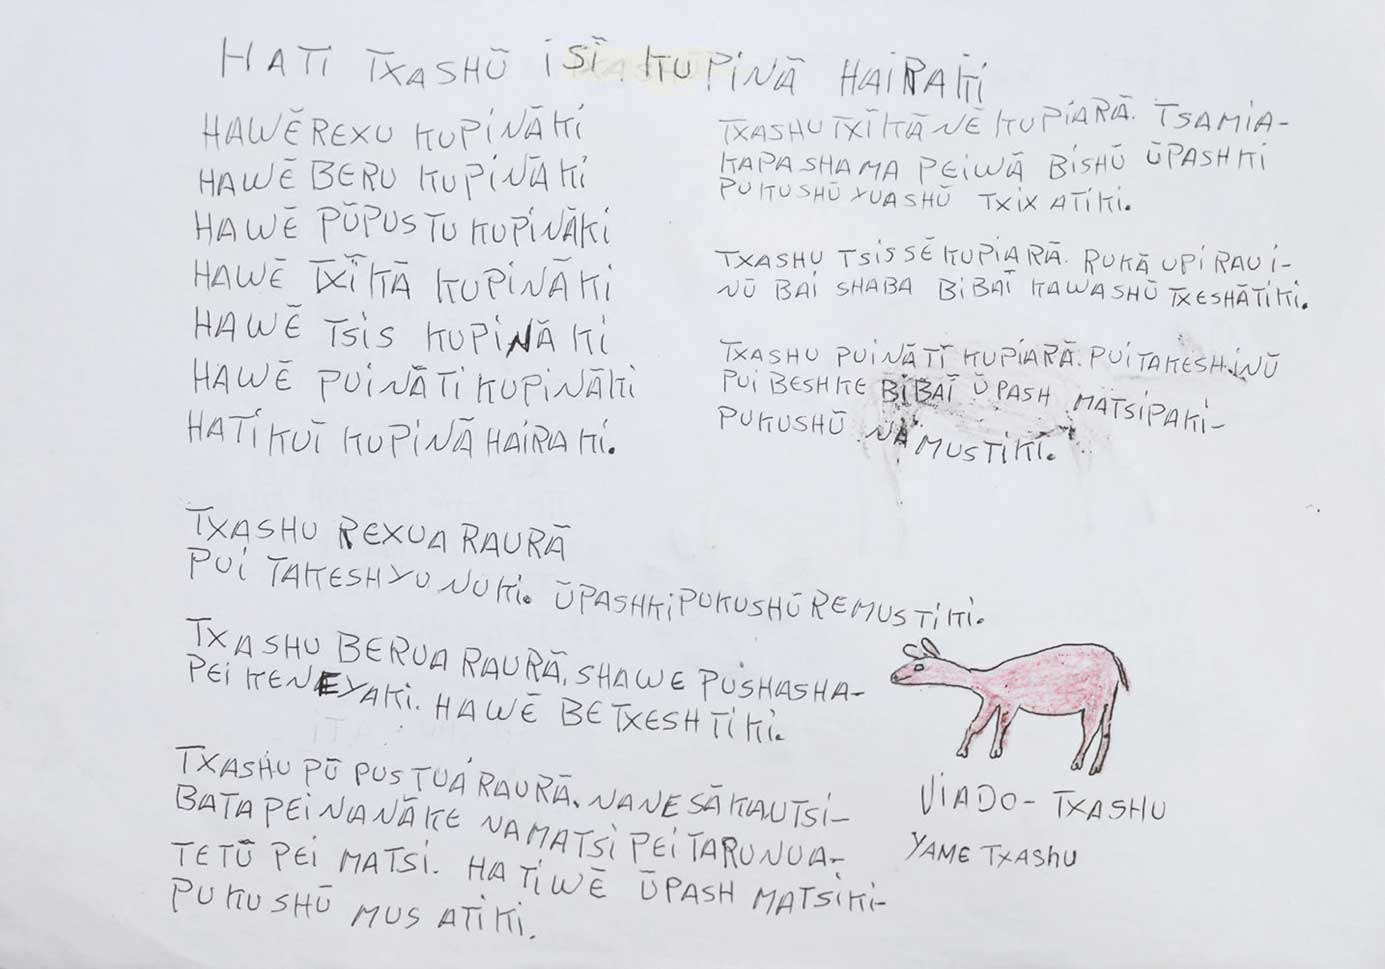 HATI TXASHŨ ISĨ KUPINÃ HAIRAKI
HAWẼ REXU KUPINÃKI
HAWẼ BERU KUPINÃKI
HAWẼ PŨPUSTU KUPINÃKI
HAWẼ TXĨKÃ KUPINÃKI
HAWẼ TSIS KUPINÃKI
HAWẼ PUINÃTI KUPINÃKI
HATIKUĨ KUPINÃ HAIRAKI.
TXASHU TXĨKÃNẼ KUPIARÃ. TSAMIA-
KAPASHAMA PEIWÃ BISHŨ ŨPASHKI
PUKUSHŨ YUASHŨ TXIX ATIKI.
TXASHU TSISSẼ KUPIARÃ. RUKÃ UPI RAUI-
NŨ BAI SHABA BIBAĨ KAWASHŨ TXESHÃTIKI.
TXASHU PUINÃTĨ KUPIARÃ. PUI TAKESHINŨ
PUI BESHKE BIBAĨ ŨPASH MATSIPAKI-
PUKUSHŨ NAIMUSTIKI.
TXASHU REXUA RAURÃ
PUI TAKESHYUNUKI. ŨPASHKI PUKUSHŨ REMUSTIKI.
TXASHU BERUA RAURÃ, SHAWE PUSHASHA-
PEI KENEYAKI. HAWẼ BETXESHTIKI.
TXASHU PŨPUSTUA RAURÃ. NANE SÃKAUTSI-
BATA PEI NANÃKE NAMATSI PEI TARUNUA-
TETŨ PEI MATSI. HATIWẼ ŨPASH MATSIKI-
PUKUSHŨ MUS ATIKI.
VIADO - TXASHU
YAME TXASHU